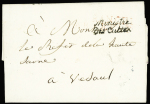 Ministre
Des Cultes
à Mons
Le Préfet de la haute
Saone
à Vesoul